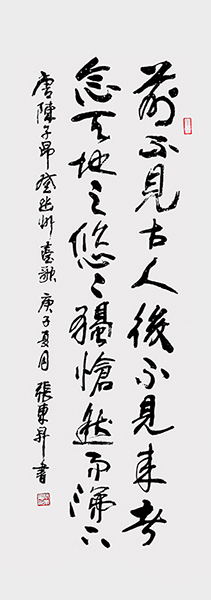 前不見古人後不見来者
念天地之悠々獨愴然而涕下
唐陳子昂登幽州臺歌庚子夏月張東升書